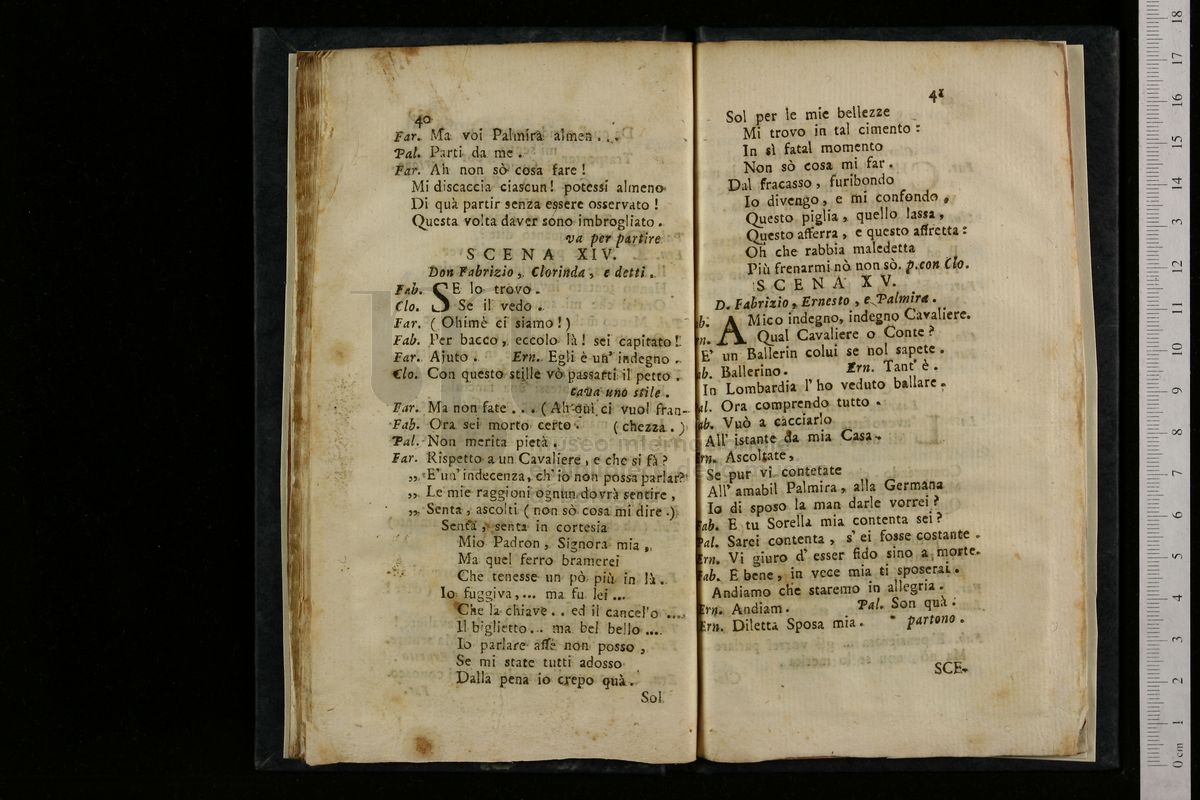 40
Far. Ma voi Palmira almen . . .
Pal. Parti da me .
Far. Ah non sò cosa fare !
Mi discaccia ciascun ! potessi almeno
Di quà partir senza essere osservato !
Questa volta daver sono imbrogliato .
va per partire
SCENA XIV.
Don Fabrizio , Clorinda , e detti .
Fab. SE lo trovo .
Clo. Se il vedo .
Far. ( Ohimè ci siamo ! )
Fab. Per bacco , eccolo là ! sei capitato !
Far. Ajuto . Ern. Egli è un' indegno .
Clo. Con questo stille vò passarti il petto .
cava uno stile .
Far. Ma non fate . . . ( Ah quì ci vuol fran-
Fab. Ora sei morto certo . ( chezza . )
Pal. Non merita pietà .
Far. Rispetto a un Cavaliere , e che si fà ?
,, E' un' indecenza, ch' io non possa parlar ?
,, Le mie raggioni ognun dovrà sentire ,
,, Senta , ascolti ( non sò cosa mi dire . )
Senta , senta in cortesia
Mio Padron , Signora mia ,
Ma quel ferro bramerei
Che tenesse un pò più in là .
Io fuggiva , ... ma fu lei ...
Che la chiave . . ed il cancel'o ....
Il biglietto ... ma bel bello ....
Io parlare affè non posso ,
Se mi state tutti adosso
Dalla pena io crepo quà .
Sol
41
Sol per le mie bellezze
Mi trovo in tal cimento :
In sì fatal momento
Non sò cosa mi far .
Dal fracasso , furibondo
Io divengo , e mi confondo ,
Questo piglia , quello lassa ,
Questo afferra , e questo affretta :
Oh che rabbia maledetta
Più frenarmi nò non sò. p. con Clo.
SCENA XV.
D. Fabrizio , Ernesto , e Palmira .
b. AMico indegno, indegno Cavaliere.
n. Qual Cavaliere o Conte ?
E' un Ballerin colui se nol sapete .
ab. Ballerino . Ern. Tant' è .
In Lombardia l' ho veduto ballare .
al. Ora comprendo tutto .
ab. Vuò a cacciarlo
All' istante da mia Casa .
Ern. Ascoltate ,
Se pur vi contetate
All' amabil Palmira , alla Germana
Io di sposo la man darle vorrei ?
Fab. E tu Sorella mia contenta sei ?
Pal. Sarei contenta , s' ei fosse costante .
Ern. Vi giuro d' esser fido sino a morte.
Fab. E bene , in vece mia ti sposerai .
Andiamo che staremo in allegria .
Ern. Andiam . Pal. Son quà :
Ern. Diletta Sposa mia . partono .
SCE-
0 cm 1 2 3 4 5 6 7 8 9 10 11 12 13 14 15 16 17 18